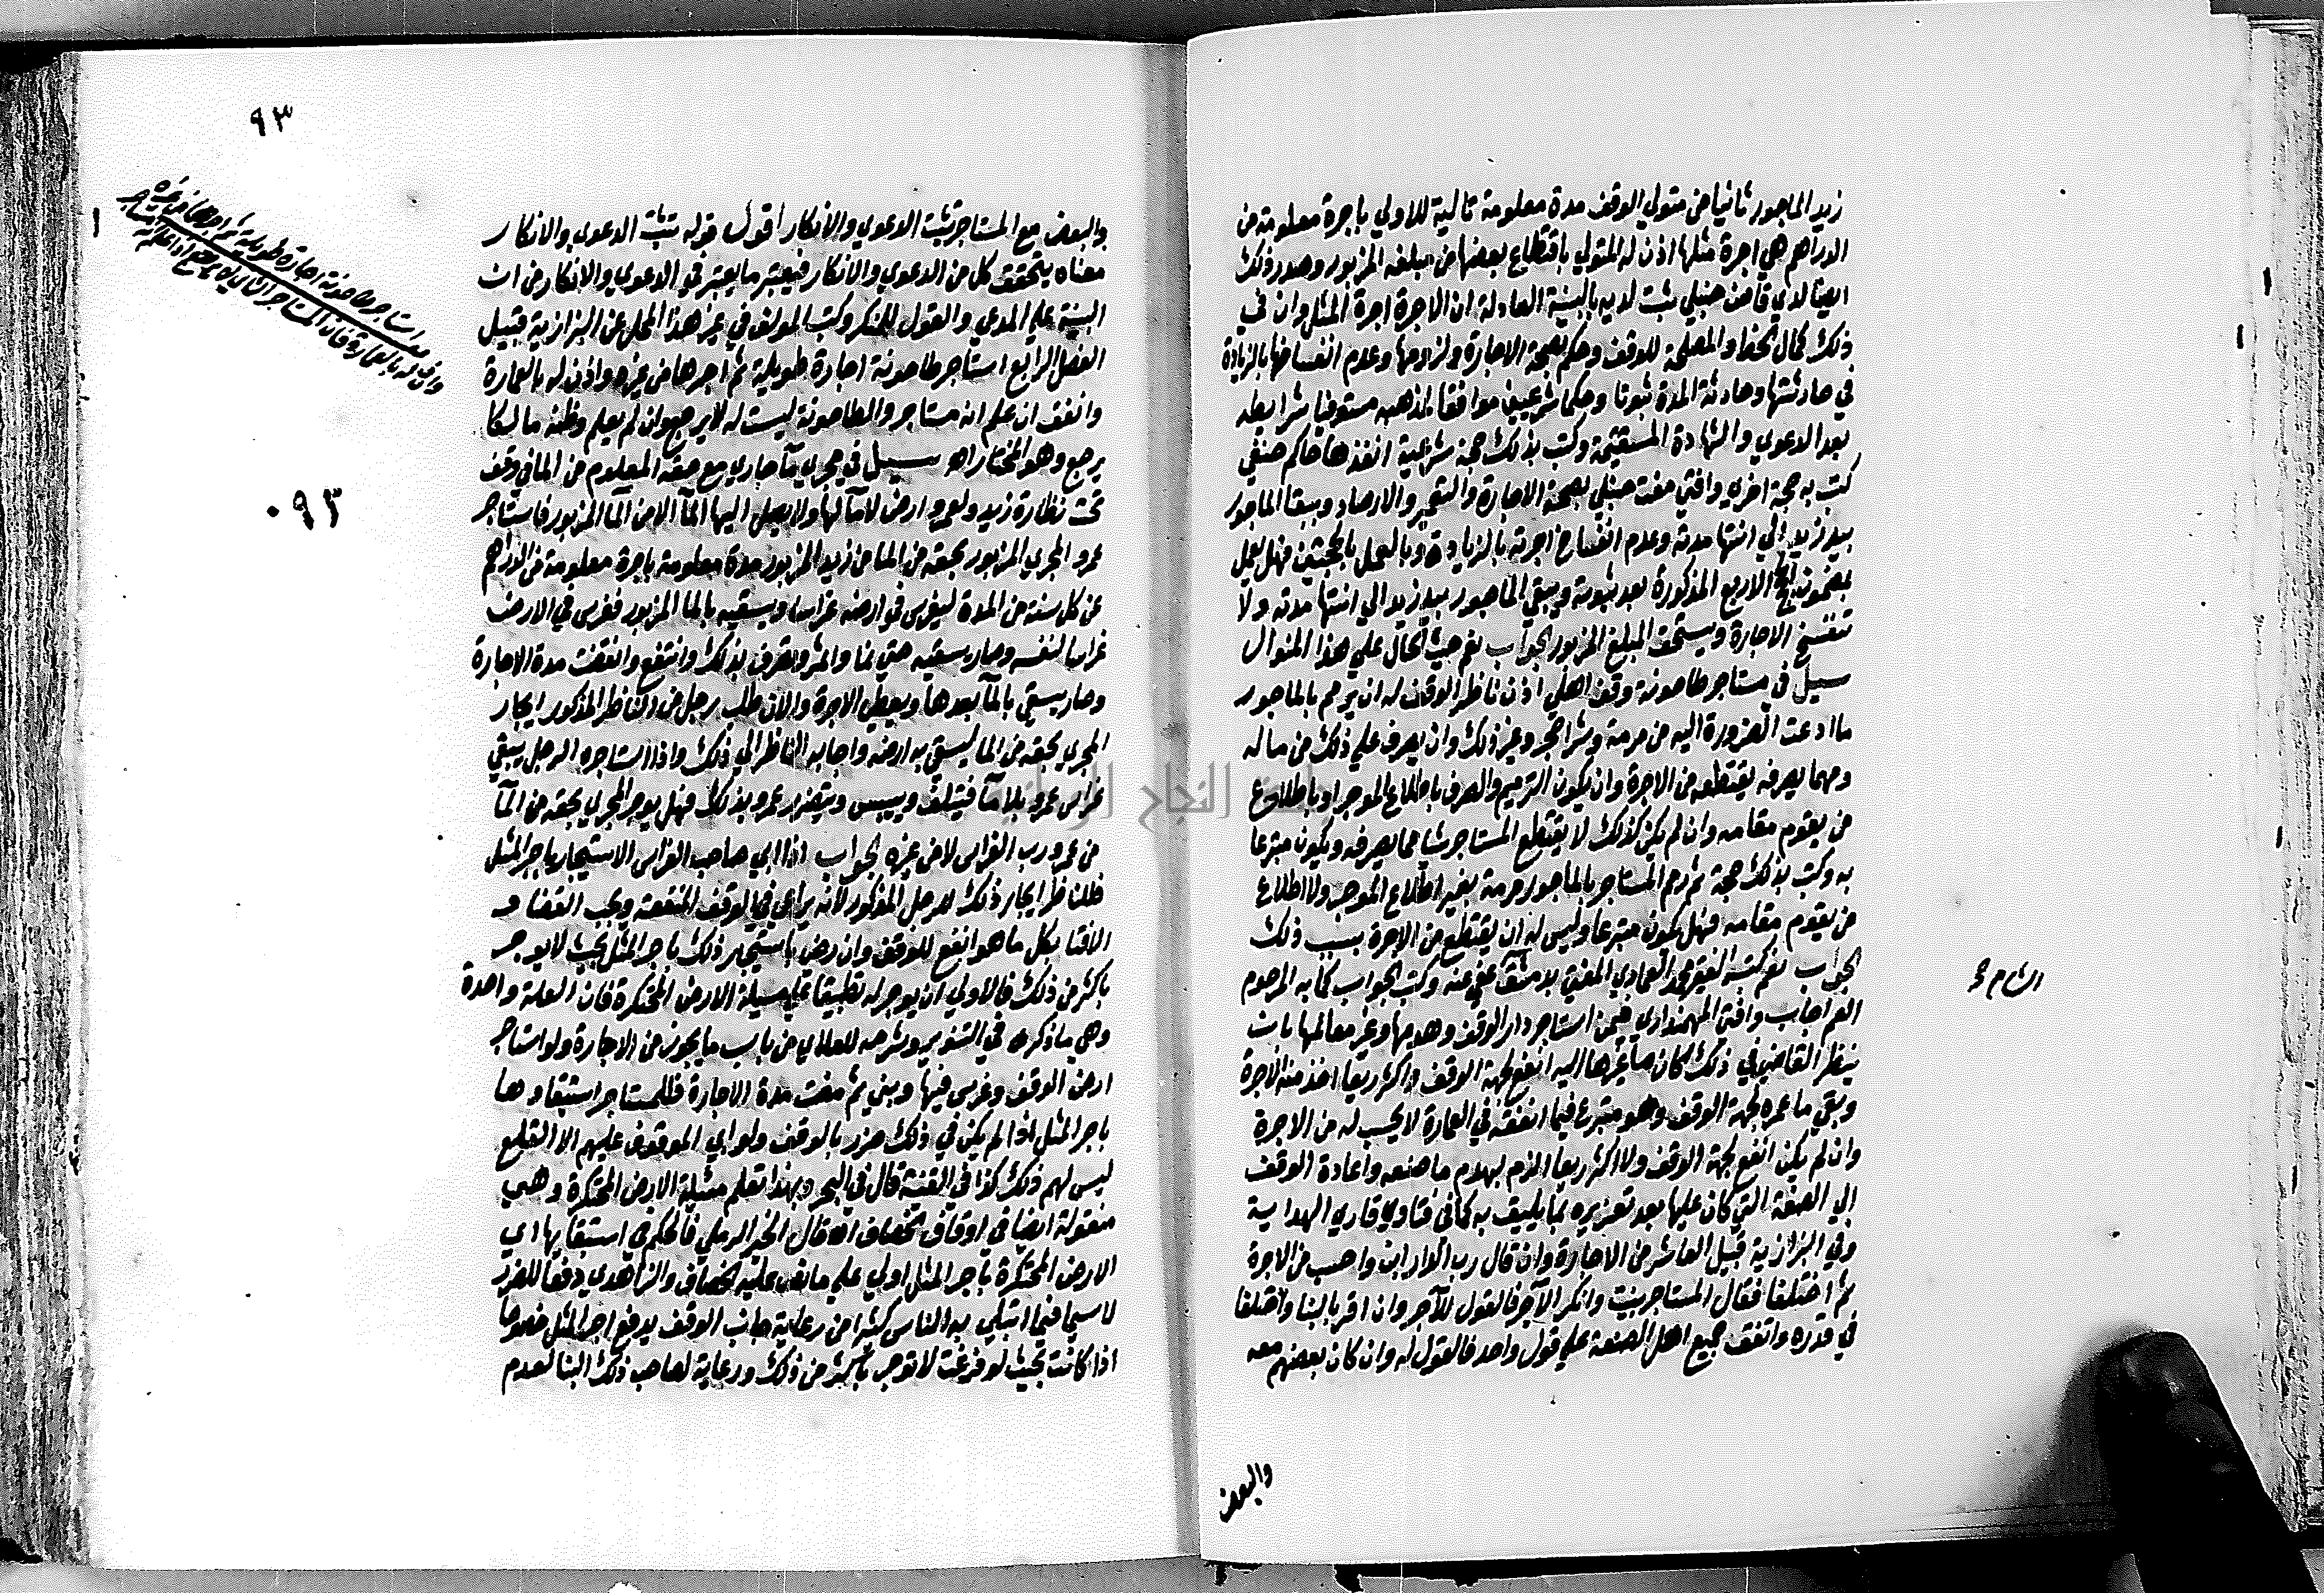 زيد الماجور ثانيا من متولي الوقف مدة معلومة تالية للاولي باجرة معلومة من
الدراهم هي اجرة مثلها اذن له المتولي باقتطاع بعضها من مبلغه المزبور وصدر ذلك
ايضا لدي قاض حنبلي ثبت لديه بالبينة العادلة ان الاجرة اجرة المثل وان في
ذلك كمال الحظ والمصلحة للوقف وحكم بصحة الاجارة ولزومها وعدم انفساخها بالزيادة
في حادثتها وحادثة المدة ثبوتا وحكما شرعيين موافقا لمذهبه مستوفيا شرايطه
بعد الدعوي والشهادة المستقيمة وكتب بذلك حجة شرعية انفذها حاكم حنفي
كتب به حجة اخري وافتي مفت حنبلي بصحة الاجارة والتعمير والارصاد وببقا الماجور
بيد زيد الي انتها مدته وعدم انفساخ اجرته بالزيادة وبالعمل بالحجتين فهل يعمل
بمضمون الحجج الاربع المذكورة بعد ثبوته ويبقي الماجور بيد زيد الي انتها مدته ولا
تنفسخ الاجارة ويستحق المبلغ المزبور الجواب نعم حيث الحال علي هذا المنوال
سيل في مستاجر طاحونة وقف اهلي اذن ناظر الوقف له ان يرمم بالماجور
ما ادعت الضرورة اليه من مرمة وشرا حجر وغير ذلك وان يصرف علي ذلك من ماله
ومهما يصرفه يقتطعه من الاجرة وان يكون الترميم والصرف باطلاع الموجر او باطلاع
من يقوم مقامه وان لم يكن كذلك لا يقتطع المستاجر شيا مما يصرفه ويكون متبرعا
به وكتب بذلك حجة ثم رمم المستاجر بالماجور مرمة بغير اطلاع الموجر ولا اطلاع
من يقوم مقامه فهل يكون متبرعا وليس له ان يقتطع من الاجرة بسبب ذلك
الجواب نعم كتبه الفقير محمد العمادي المفتي بدمشق عفي عنه وكتب الجواب كما به المرحوم
العم اجاب وافتي المهمنداري فيمن استاجر دار الوقف وهدمها وغير معالمها بان
ينظر القاضي في ذلك كان ما غيرها اليه انفع لجهة الوقف واكثر ريعا اخذ منه الاجرة
وبقي ما عمره لجهة الوقف وهو متبرع فيما انفقه في العمارة لا يحسب له من الاجرة
وان لم يكن انفع لجهة الوقف ولا اكثر ريعا الزم بهدم ما صنعه واعادة الوقف
الي الصفة التي كان عليها بعد تعزيره بما يليق به كما في فتاوي قاري الهداية
وفي البزازية قبيل العاشر من الاجارة وان قال رب الدار ابن واحسب من الاجرة
ثم اختلفا فقال المستاجر بنيت وانكر الآجر فالقول للآجر وان اقر بالبنا واختلفا
في قدره واتفق جميع اهل الصنعة علي قول واحد فالقول له وان كان بعضهم معه
والبعض
٩٣
والبعض مع المستاجر ثبت الدعوي والانكار اقول قوله ثبت الدعوي والانكار
معناه يتحقق كل من الدعوي والانكار فيعتبر ما يعتبر في الدعوي والانكار من ان
البينة علي المدعي والقول للمنكر وكتب المولف في غير هذا المحل عن البزازية قبيل
الفصل الرابع استاجر طاحونة اجارة طويلة ثم اجرها من غيره واذن له بالعمارة
وانفق ان علم انه مستاجر والطاحونة ليست له لا يرجع وان لم يعلم وظنه مالكا
يرجع وهو المختار اه سيل في مجري مآ جاري مع حقه المعلوم من الما في وقف
تحت نظارة زيد ولعمرو ارض لا مآ لها ولا يصل اليها المآ الا من المآ المزبور فاستاجر
عمرو المجري المزبور بحقه من الما من زيد المزبور مدة معلومة باجرة معلومة من الدراهم
عن كل سنة من المدة ليغرس في ارضه غراسا ويسقيه بالما المزبور فغرس في الارض
غراسا لنفسه وصار يسقيه حتي نما واثمر وتصرف بذلك وانتفع وانقضت مدة الاجارة
وصار يسقي بالمآ بعدها ويعطي الاجرة والان طلب رجل من الناظر المذكور ايجار
المجري بحقه من الما ليسقي به ارضه واجابه الناظر الي ذلك واذا استاجره الرجل يبقي
غراس عمرو بلا مآ فيتلف وييبس ويتضرر عمرو بذلك فهل يوجر المجري بحقه من المآ
من عمرو رب الغراس لا من غيره الجواب اذا ابي صاحب الغراس الاستيجار باجر المثل
فللناظر ايجار ذلك للرجل المذكور لانه يراعي في الوقف المنفعة ويجب القضا و
الافتا بكل ما هو انفع للوقف وان رضي باستيجار ذلك باجر المثل بحيث لا يوجر
باكثر من ذلك فالاولي ان يوجر له تطبيقا علي مسيلة الارض المحتكرة فان العلة واحدة
وهي ما ذكره في التنوير وشرحه للعلاي من باب ما يجوز من الاجارة ولو استاجر
ارض الوقف وغرس فيها وبني ثم مضت مدة الاجارة فللمستاجر استبقاوها
باجر المثل اذا لم يكن في ذلك ضرر بالوقف ولو ابي الموقوف عليهم الا القلع
ليس لهم ذلك كذا في القنية قال في البحر وبهذا تعلم مسئلة الارض المحتكرة وهي
منقولة ايضا في اوقاف الخصاف اه قال الخير الرملي فالحكم في استبقايها اي
الارض المحتكرة باجر المثل اولي علي ما نص عليه الخصاف والزاهدي دفعا للضرر
لا سيما فيما ابتلي به الناس كثيرا من رعاية جانب الوقف بدفع اجر المثل خصوصا
اذا كانت بحيث لو فرغت لا توجر باكثر من ذلك ورعاية لصاحب ذلك البنا لعدم
استاجر طاحونة اجارة طويلة ثم اجرها من غيره
واذن له بالعمارة فان
٠٩٣